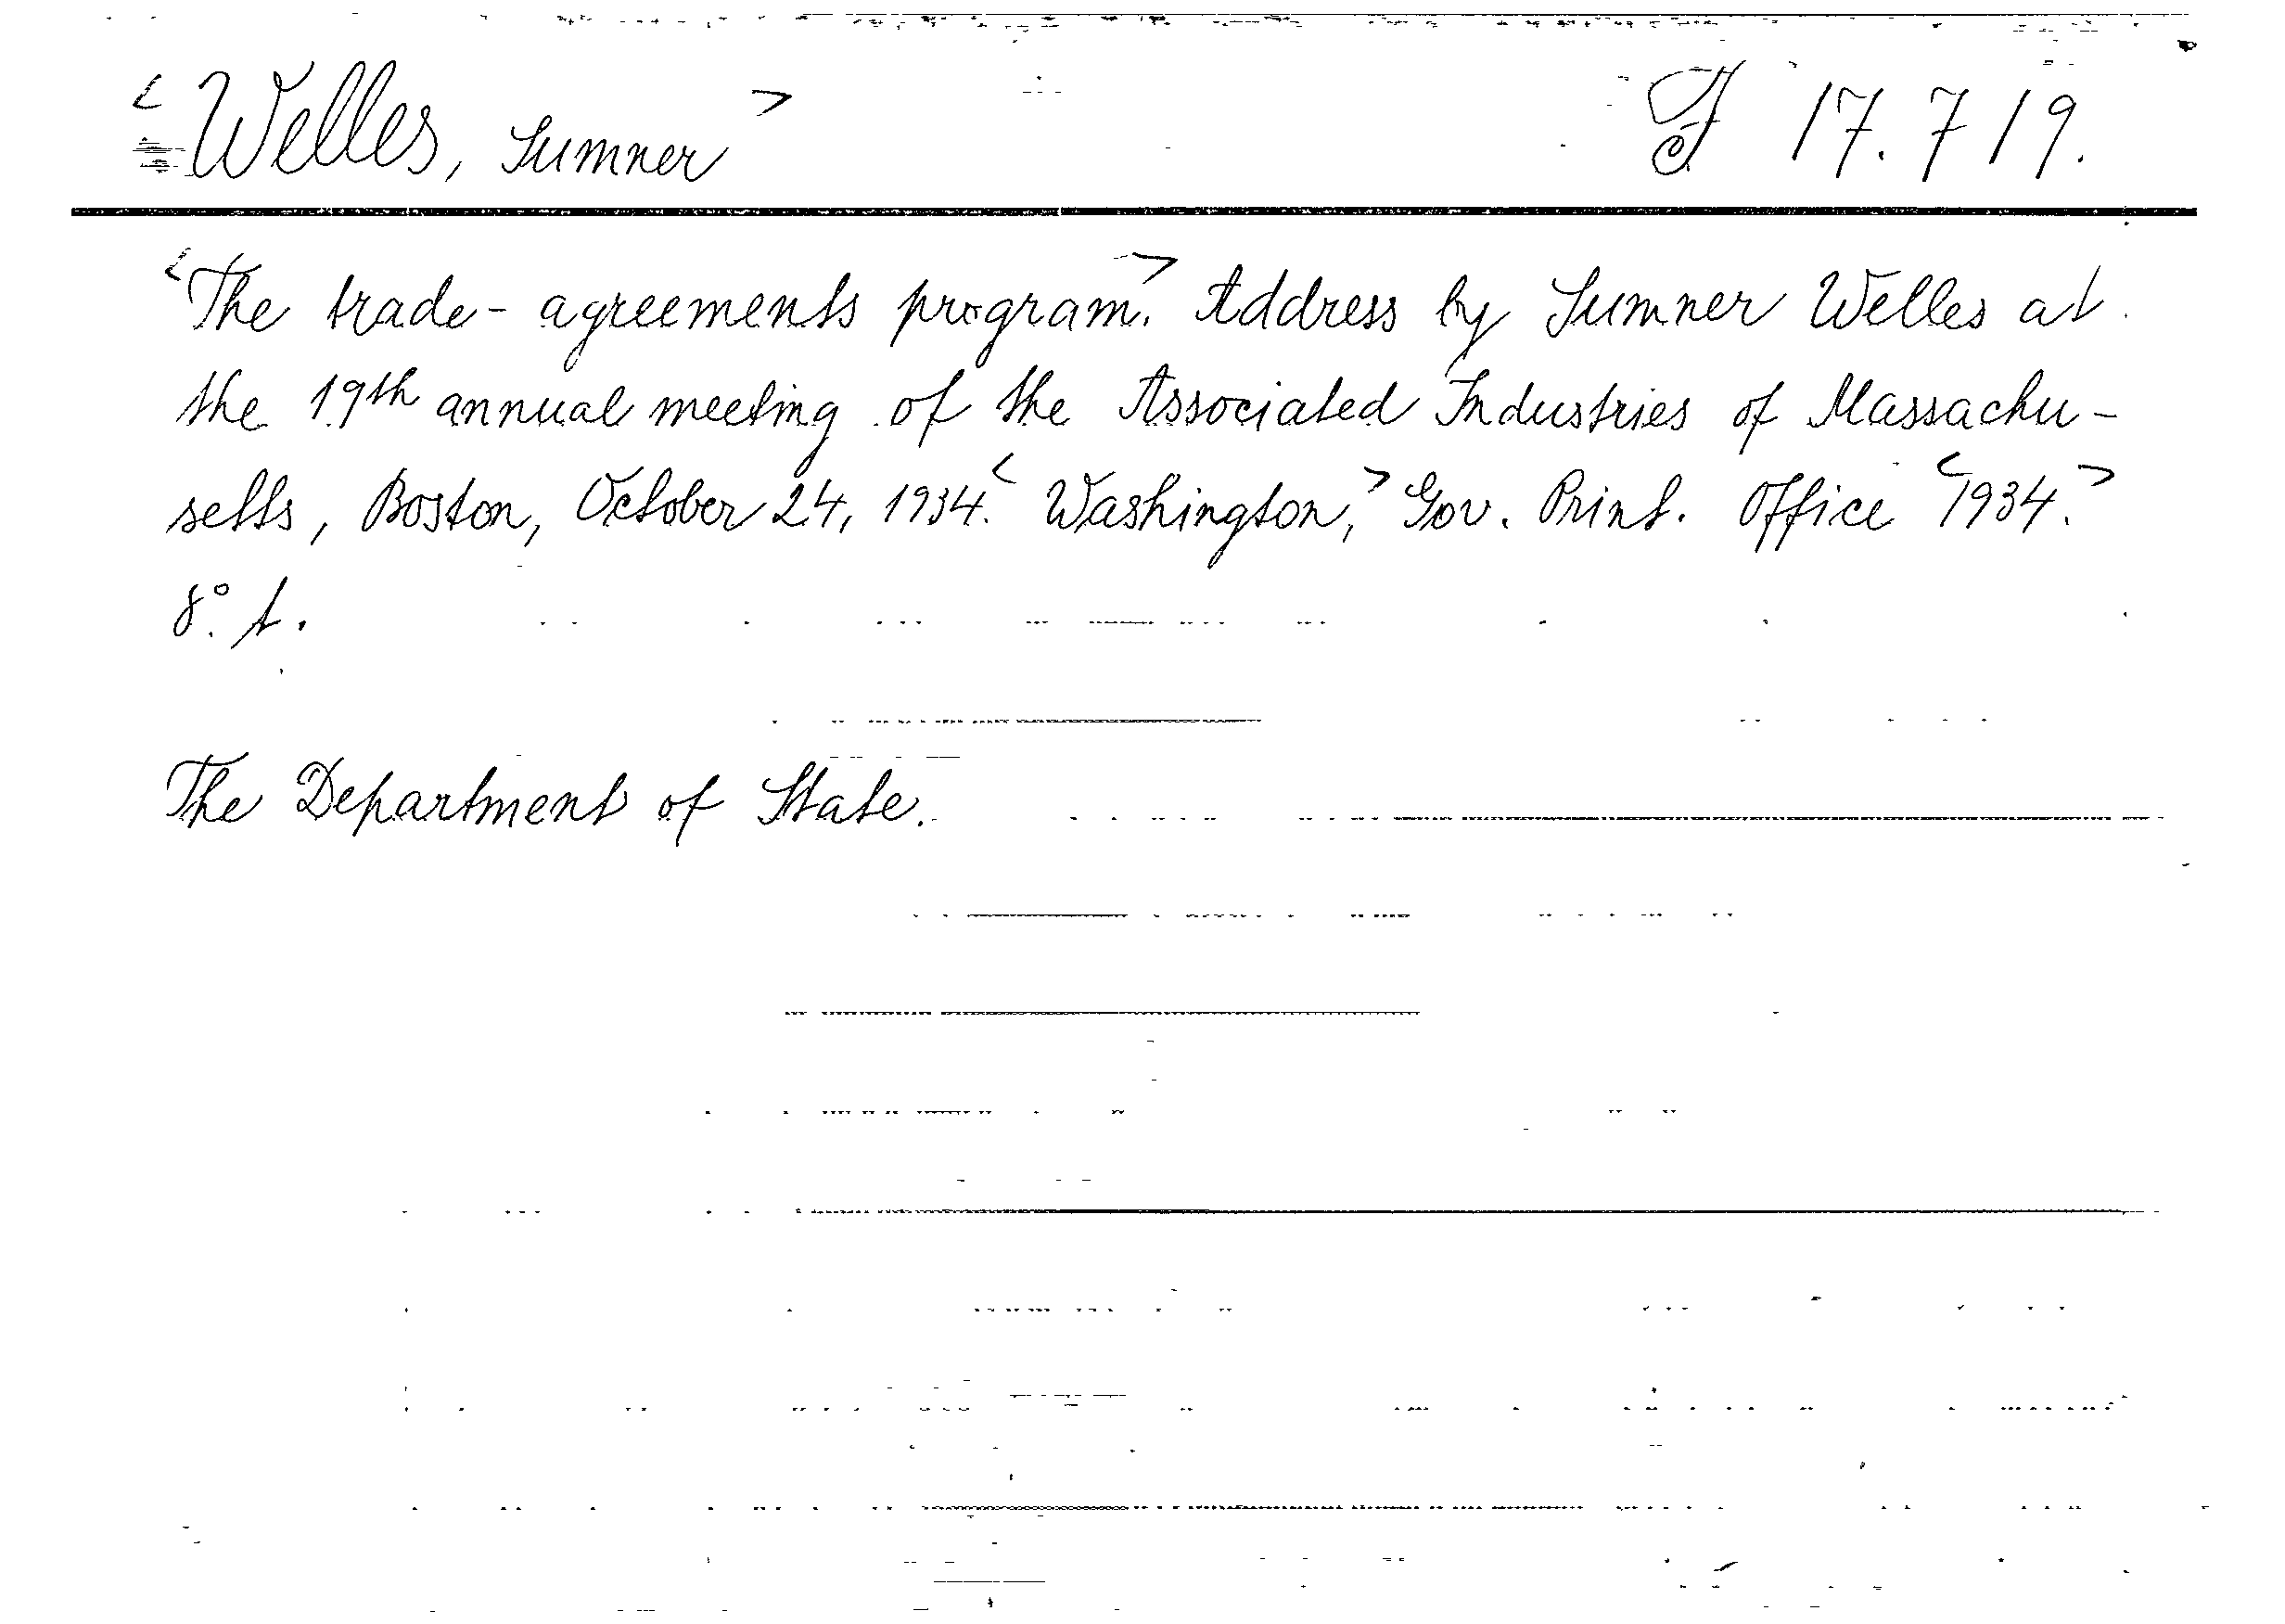 <Welles, Sumner> F 17.719.
<The trade-agreements program.> Address by Sumner Welles at
the 19th annual meeting of the Associated Industries of Massachu-
setts, Boston, October 24, 1934. <Washington,> Gov. Print. Office <1934.>
8° t.
The Department of State.